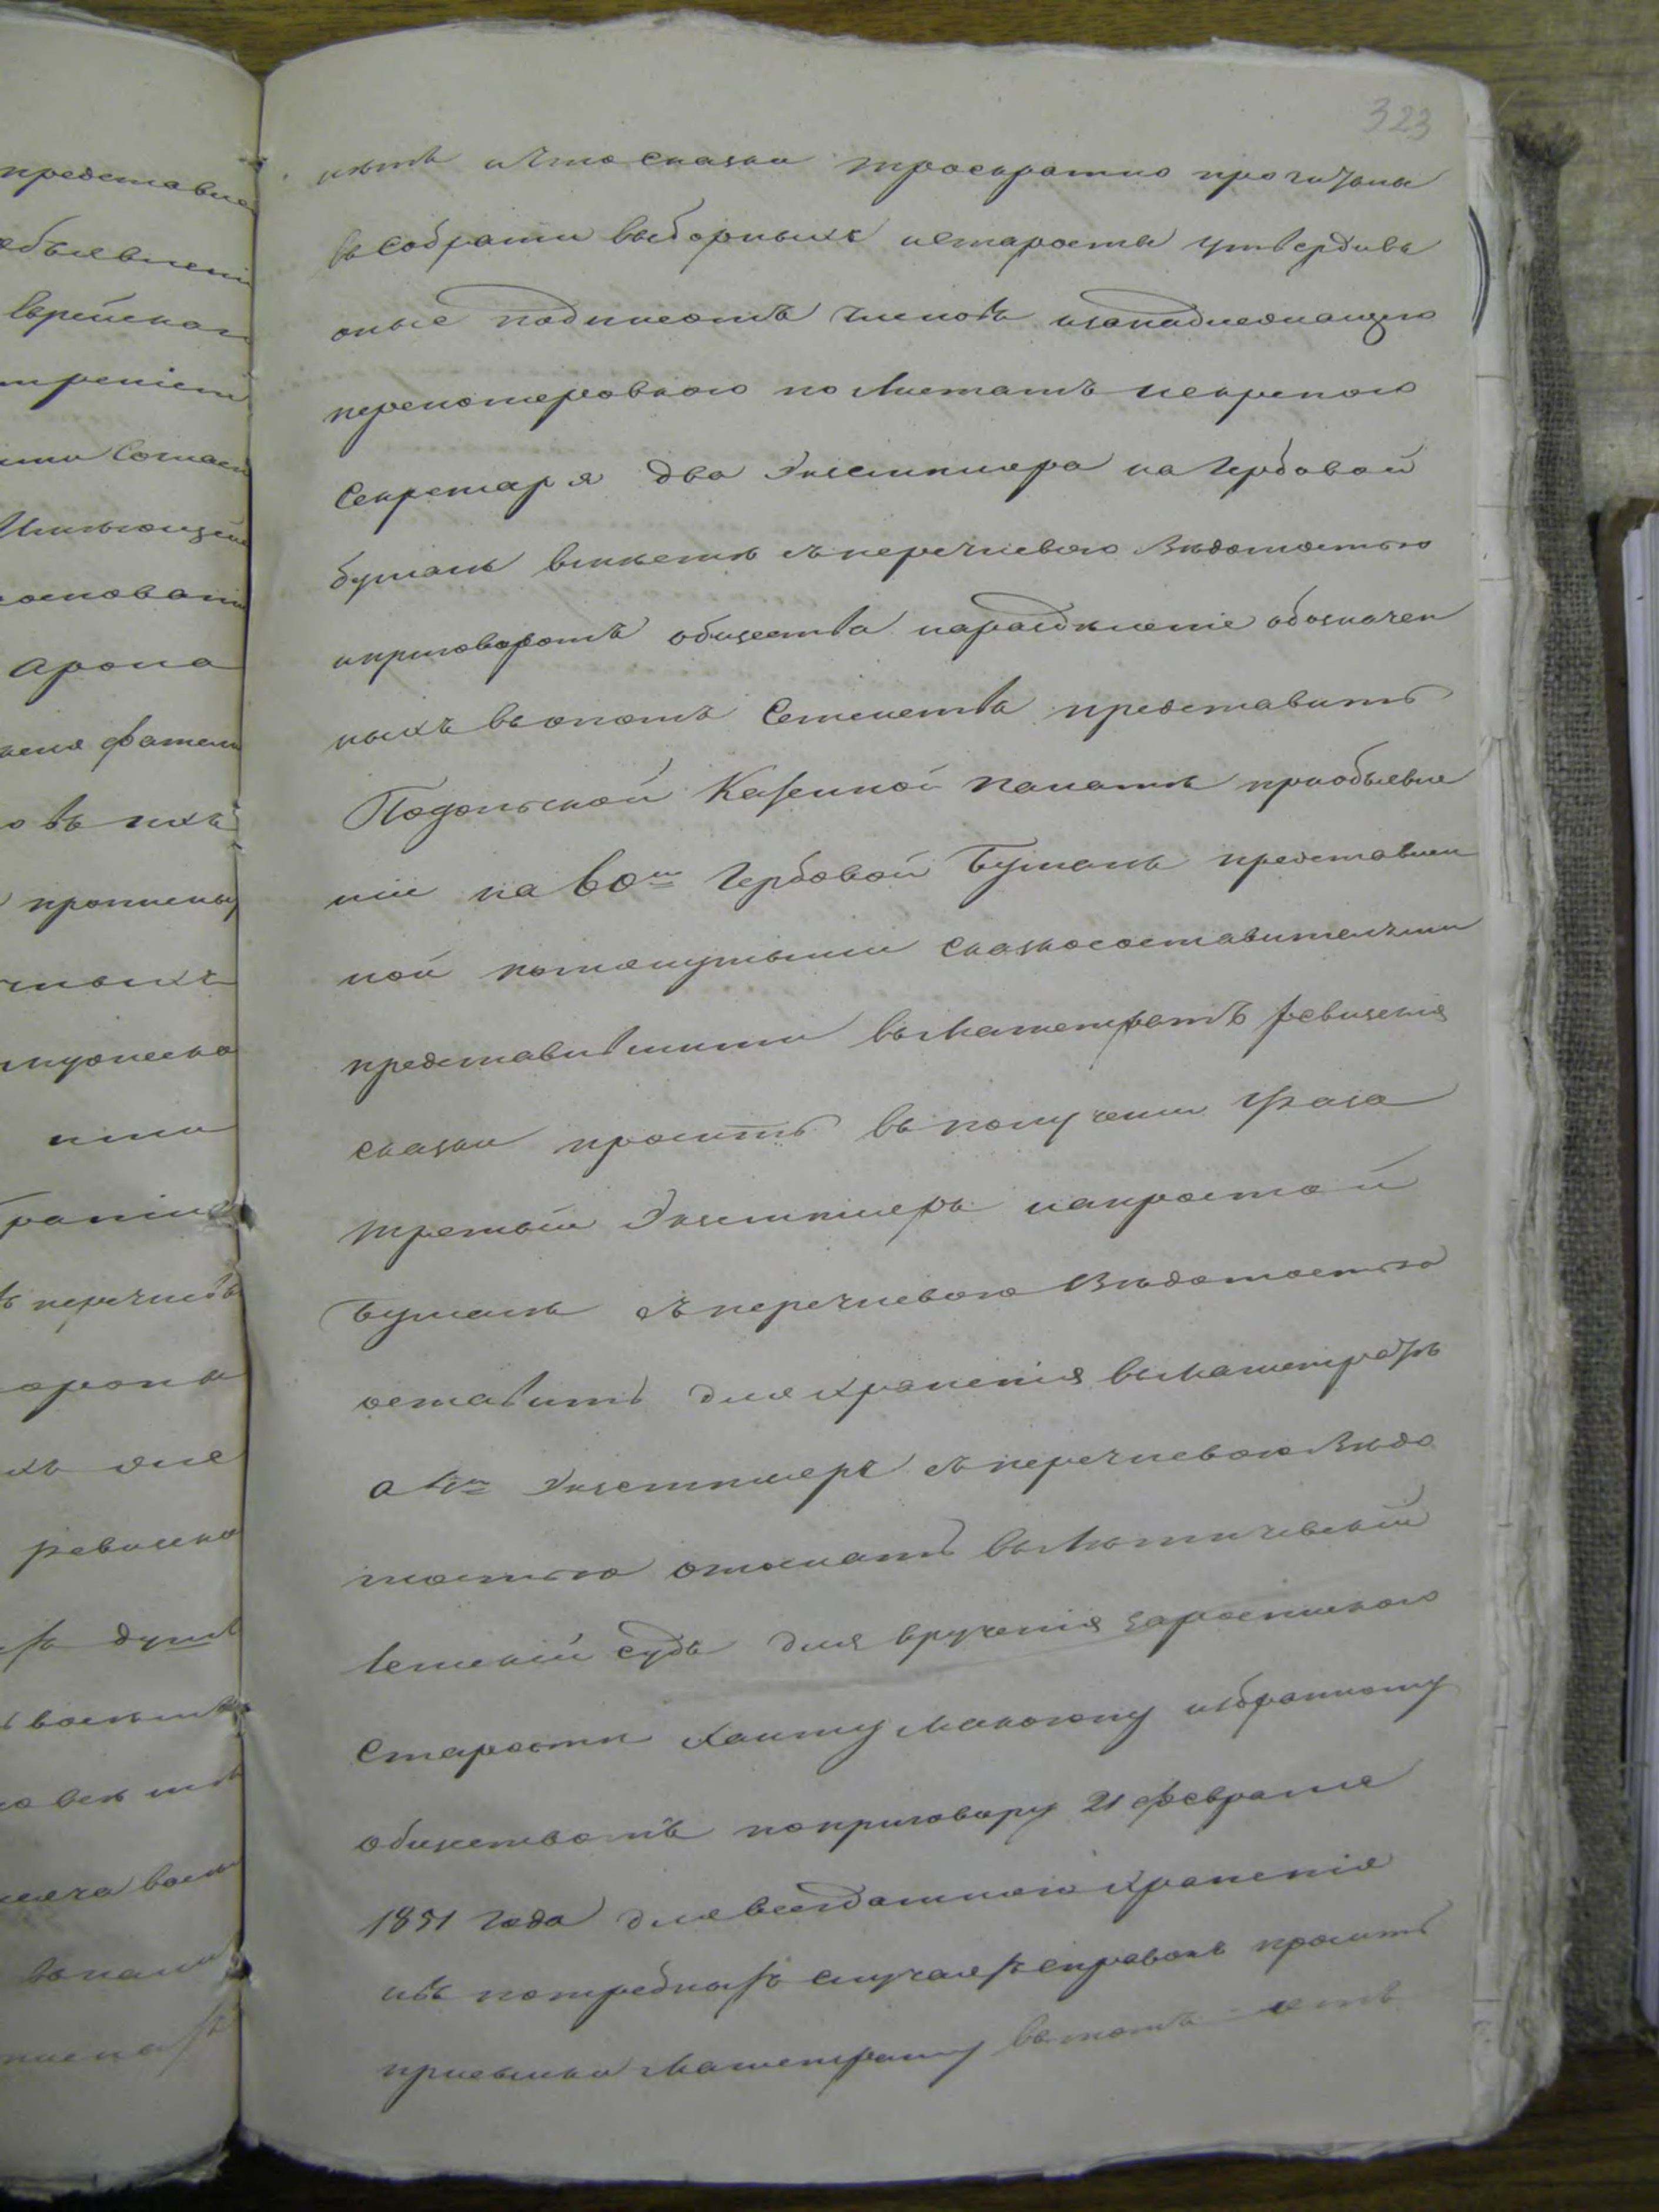 323
нѣтъ и что сказки троекратно прочитаны
въ собраніи выборныхъ и старосты утвердивъ
оные подписомъ членовъ и за надлежащею
перенотеровкою по листамъ и скрепою
Секретаря два Экземпляра на Гербовой
бумагѣ вмѣстѣ съ перечневою вѣдомостью
и приговоромъ общества на раздѣленіе обозначен
ныхъ въ ономъ Семействъ представить
Подольской Казенной палатѣ при объявле
ніи на 60 Гербовой бумагѣ представлен
ной помянутыми сказкосоставителями
представившими въ Магистратъ ревизскія
сказки просить въ полученіи Указа
третьій Экземпляръ на простой
бумагѣ съ перечневою Вѣдомостью
оставить для храненія въ Магистратѣ
а 4й Экземпляръ съ перечневою вѣдо
мостью отослать въ Летичевскій
Земскій судъ для врученія
Старости Хаиму избранному
обществомъ по приговору 21 февраля
1851 года для всегдашняго храненія
и въ потребныхъ случаяхъ справокъ просить
присылки Магистрату въ томъ
представле
объявлени
Еврейског
Арона
ревизско
душъ